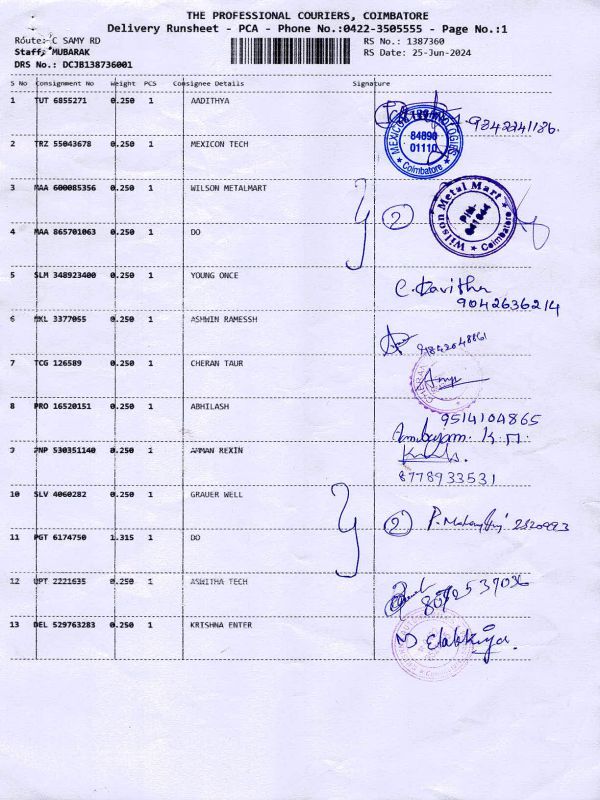 THE PROFESSIONAL COURIERS, COIMBATORE
Delivery Runsheet - PCA - Phone No.:0422-3505555 - Page No.:1
Route: C SAMY RD
RS No.: 1387360
Staff: MUBARAK
RS Date: 25-Jun-2024
DRS No.: DCJB138736001
S No Consignment No Weight PCS Consignee Details Signature
1 TUT 6855271 0.250 1 AADITHYA
9842241186.
MEXICON TECHNOLOGIES 84890 01110 Coimbatore
2 TRZ 55043678 0.250 1 MEXICON TECH
3 MAA 600085356 0.250 1 WILSON METALMART
2 Wilson Metal Mart PIN- Coimbatore
4 MAA 865701063 0.250 1 DO
5 SLM 348923400 0.250 1 YOUNG ONCE
C. Kavitha
9042636214
6 HKL 3377055 0.250 1 ASHWIN RAMESSH
7 TCG 126589 0.250 1 CHERAN TAUR
8 PRO 16520151 0.250 1 ABHILASH
9514104865
9 PNP 530351140 0.250 1 AMMAN REXIN
8778933531
10 SLV 4060282 0.250 1 GRAUER WELL
2
11 PGT 6174750 1.315 1 DO
12 UPT 2221635 0.250 1 ASWITHA TECH
13 DEL 529763283 0.250 1 KRISHNA ENTER